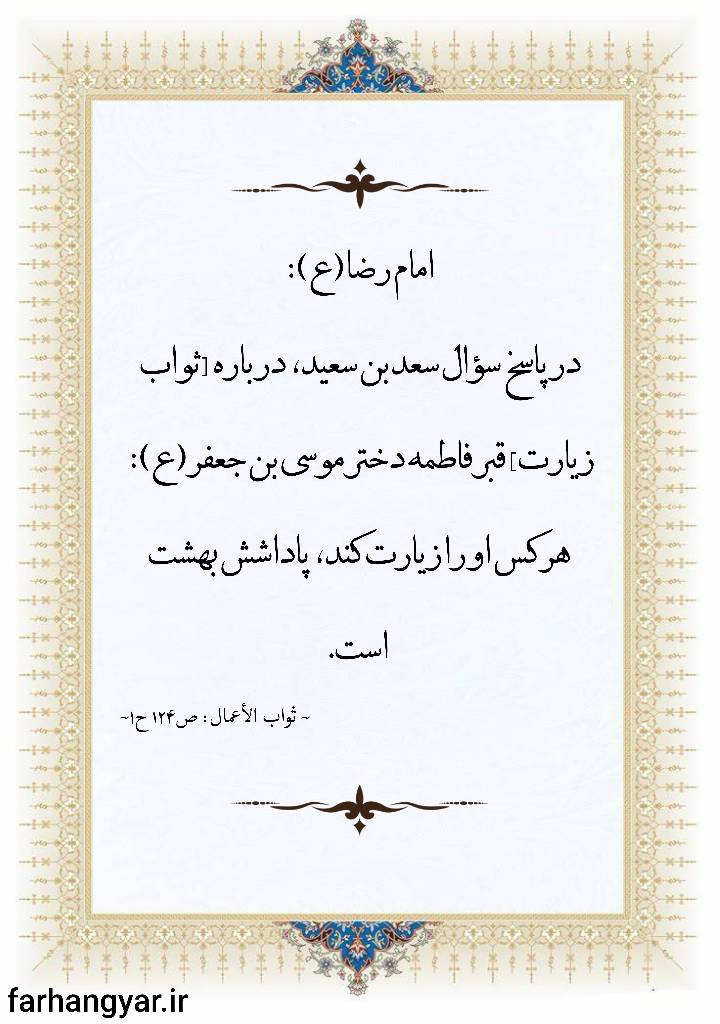 امام رضا(ع):
در پاسخ سؤال سعد بن سعید، درباره [ثواب
زیارت] قبر فاطمه دختر موسی بن جعفر(ع):
هر کس او را زیارت کند، پاداشش بهشت
است.
~ ثواب الأعمال: ص۱۲۴ ح۱~
farhangyar.ir